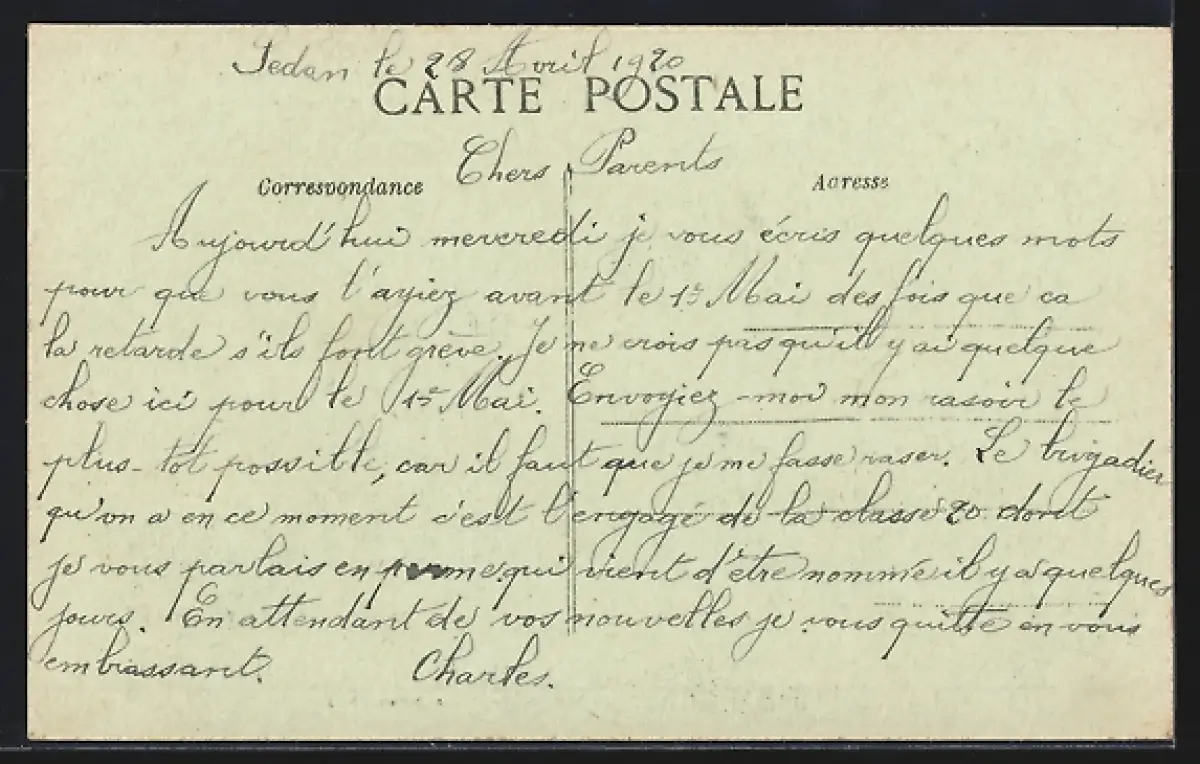 Sedan le 28 Avril 1920
CARTE POSTALE
Chers Parents
Correspondance
Adresse
Aujourd'hui mercredi je vous écris quelques mots
pour que vous l'ayiez avant le 1er Mai des fois que ca
la retarde s'ils font grève. Je ne crois pas qu'il y ai quelque
chose ici pour le 1er Mai. Envoyiez-moi mon rasoir le
plus-tôt possible, car il faut que je me fasse raser. Le brigadier
qu'on a en ce moment c'est l'engagé de la classe 20 dont
je vous parlais en perme qui vient d'être nommé il y a quelques
jours. En attendant de vos nouvelles je vous quitte en vous
embrassant. Charles.